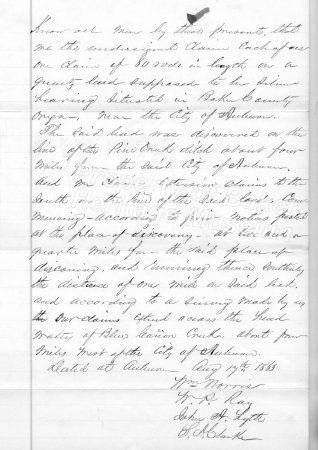 Know all men by these presents, that
we the undersigned claim each of us
one claim of 80 rods in length on a
quartz lead supposed to be silver
bearing situated in Baker County
Oregon, near the City of Auburn.
The said lead was discovered on the
line of the Pine Creek ditch about four
miles from the said City of Auburn.
And we claim extension claims to the
South on the line of the said lead. Com
mencing according to prior notice posted
at the place of discovery - at one and a
quarter miles from the said place of
discovery, and running thence southerly
the distance of one mile on said lead.
and according to a survey made by us
the our claims extend across the head
waters of Blue Cañon Creek about four
miles west of the City of Auburn.
Dated at Auburn Aug 19th 1863
Wm Morris
W. P. Ray
John A. Lytle
S. A. Clarke